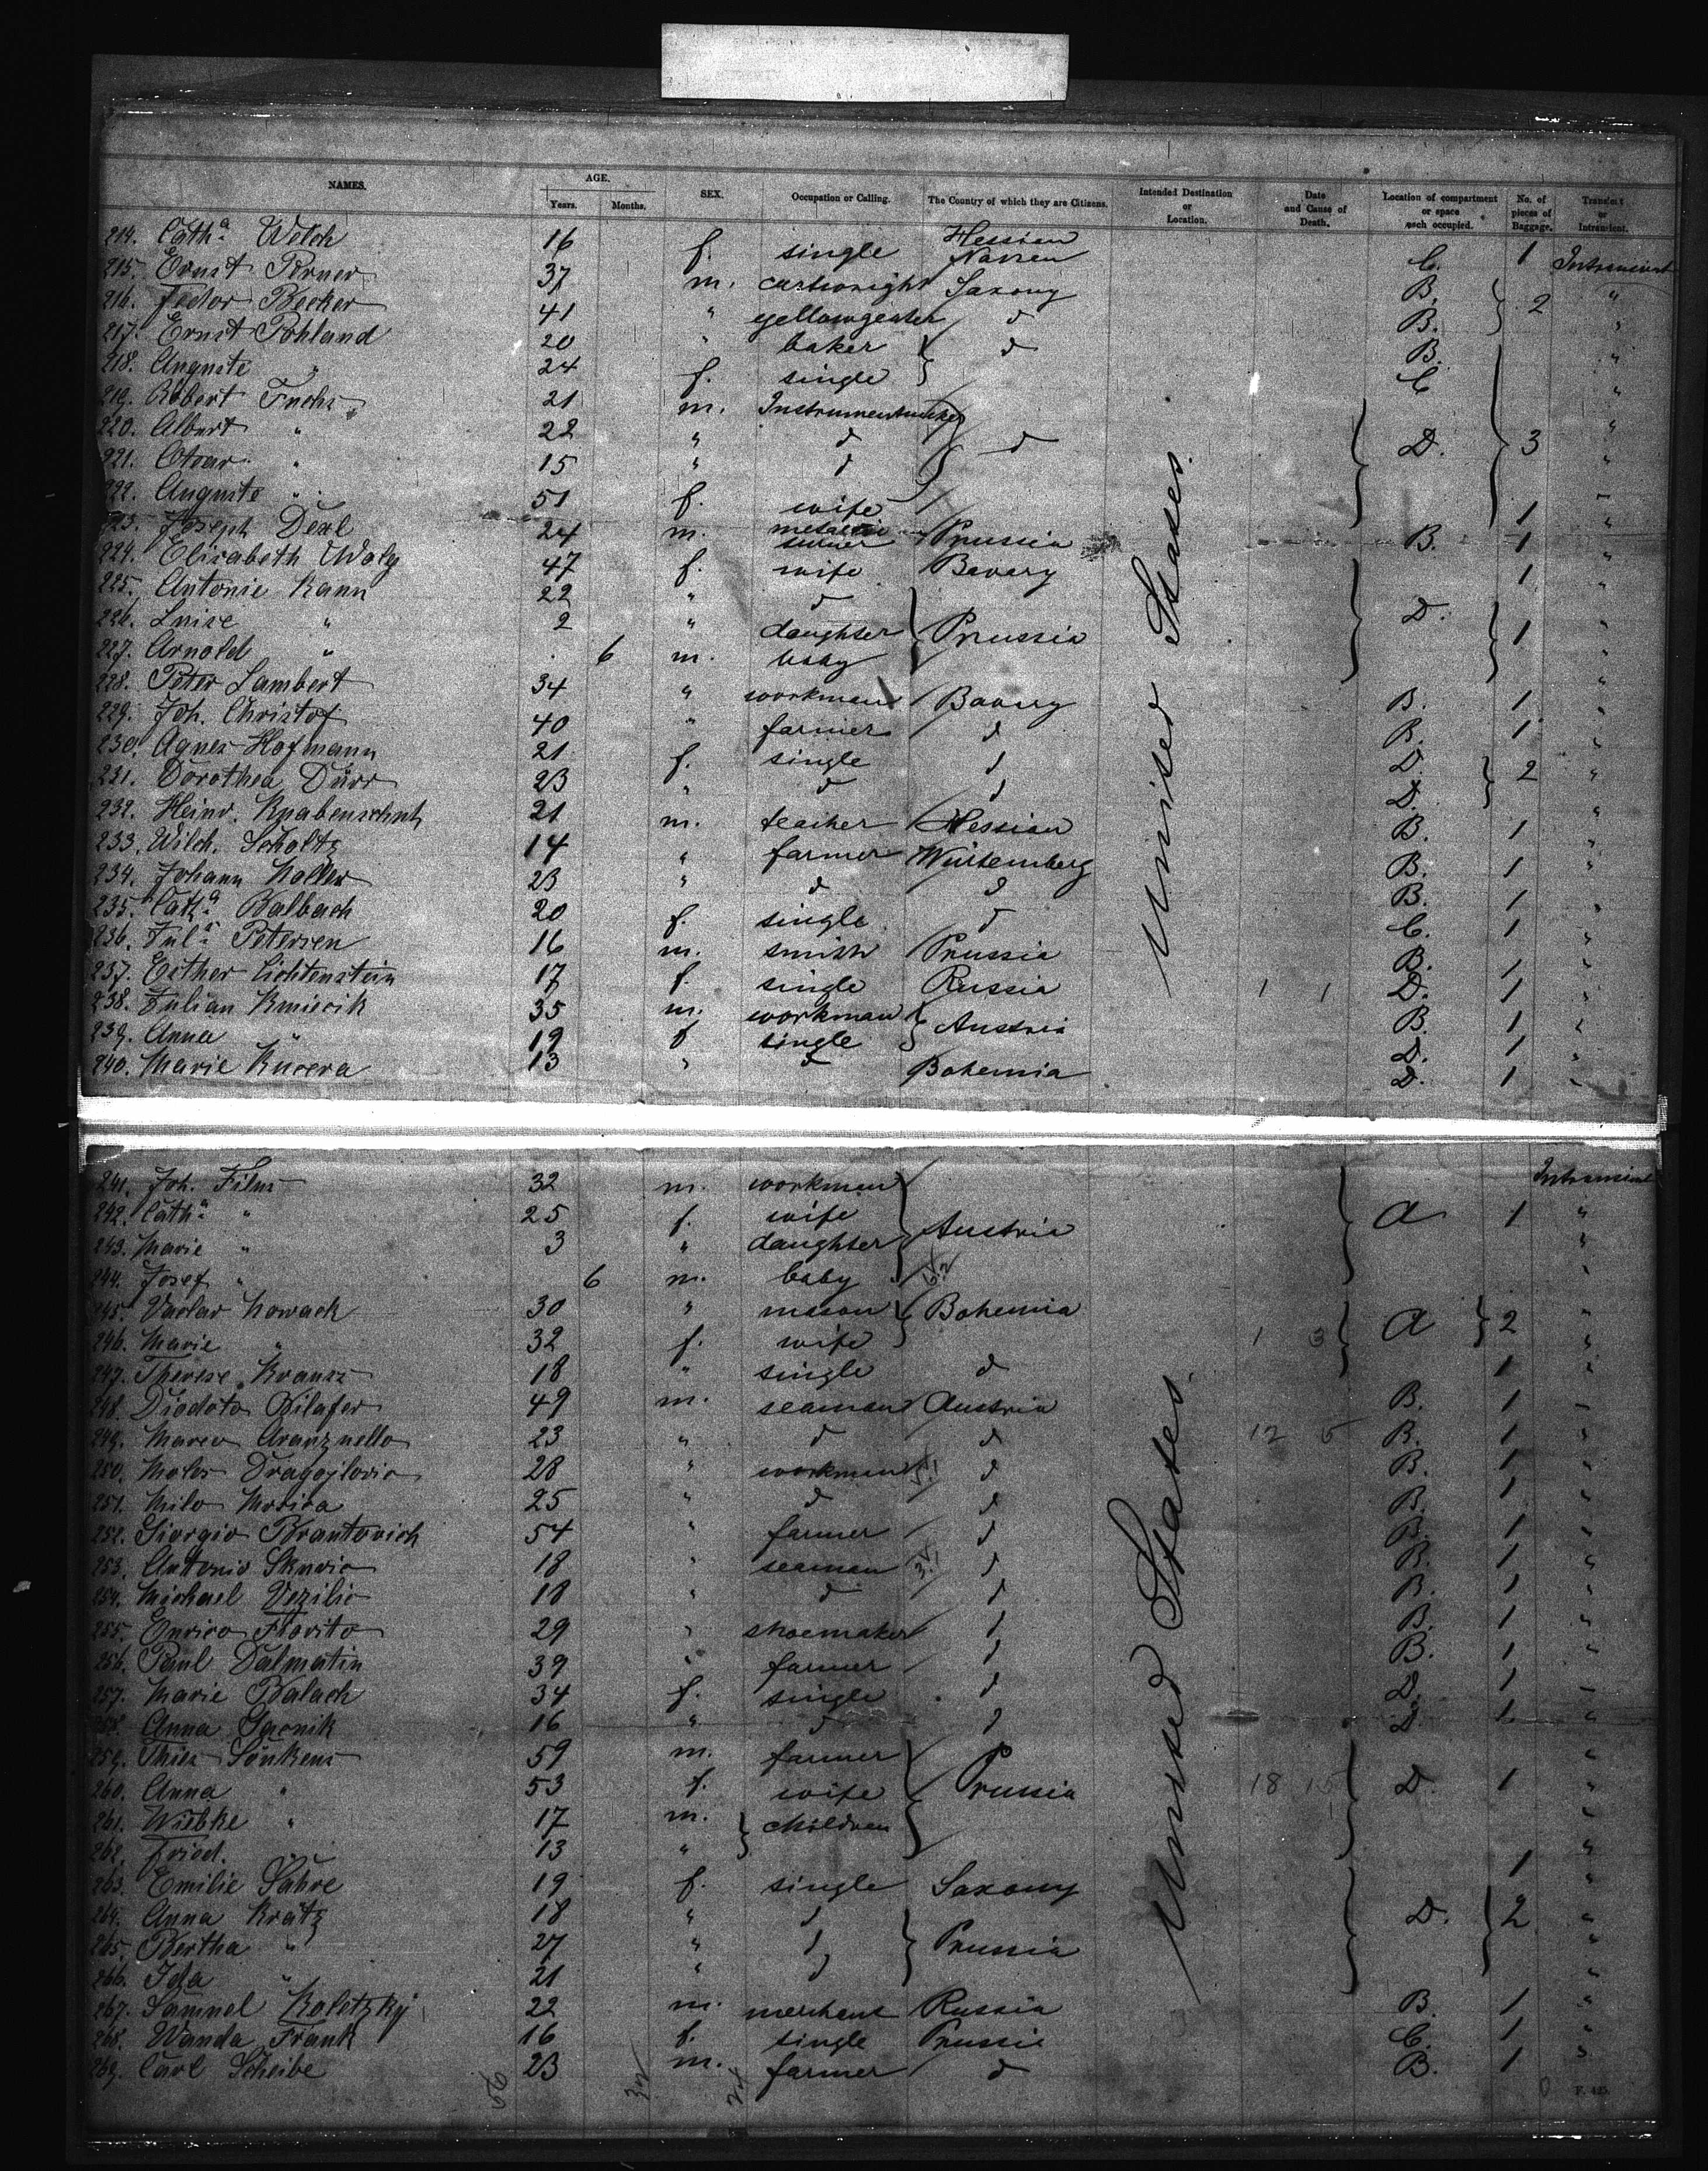 NAMES. AGE. SEX. Occupation or Calling. The Country of which they are Citizens. Intended Destination or Location. Date and Cause of Death. Location of compartment or space each occupied. No. of pieces of Baggage. Transient or Intransient.
Years. Months.
214. Cath.a Welch 16 f. single Hessien Nassau C. 1 Intransient
215. Ernst Perner 37 m. cartwright Saxony B. 2 "
216. Fedor Becker 41 " d B. "
217. Ernst Pohland 20 " baker d B. "
218. Auguste " 24 f. single C "
219. Robert Fuchs 21 m. Instrumentmaker "
220. Albert " 22 " d d D. 3 "
221. " 15 " d "
222. Auguste " 51 f. wife 1
223. Joseph Dexl 24 m. Prussia B. 1 "
224. Elisabeth 47 f. wife Bavary 1 "
225. Antonie Kann 22 " d D. "
226. Luise " 2 " daughter Prussia 1 "
227. Arnold " 6 m. baby "
228. Peter Lambert 34 " workman Bavary B. 1 "
229. Joh. Christof 40 " farmer d B. 1 "
230. Agnes Hofmann 21 f. single d D. 2 "
231. Dorothea Dürr 23 " d d D. "
232. Heinr. Knabenschuh 21 m. teacher Hessian B. 1 "
233. Wilh. Scholtz 14 " farmer Würtemberg B. 1 "
234. Johann Koller 23 " d d B. 1 "
235. Cath.a Balbach 20 f. single d C. 1 "
236. Juls Petersen 16 m. smith Prussia B. 1 "
237. Esther Lichtenstein 17 f. single Russia 1 1 D. 1 "
238. Julian Kmiecik 35 m. workman Austria B. 1 "
239. Anna " 19 f single D. 1 "
240. Marie Kucera 13 " d Bohemia D. 1 "
United States.
241. Joh. Filus 32 m. workman Intransient
242. Cath.a " 25 f. wife Austria A 1 "
243. Marie " 3 " daughter "
244. Josef " 6 m. baby "
245. Vaclav Nowack 30 " mason Bohemia A 2 "
246. Marie " 32 f. wife 1 3 "
247. Therese Kraus 18 " single d 1 "
248. Diodoto Bilafer 49 m. seaman Austria B. 1 "
249. Marco 23 " d d 12 5 B. 1 "
250. Dragojlovic 28 " workman d B. 1 "
251. Milo 25 " d d B. 1 "
252. Giorgio Brantovich 54 " farmer d B. 1 "
253. Antonio 18 " seaman d B. 1 "
254. Michael Vezilic 18 " d d B. 1 "
255. Enrico Fiorito 29 " shoemaker d B. 1 "
256. Paul Dalmatin 39 " farmer d B. 1 "
257. Marie Balach 34 f. single d D. 1 "
258. Anna 16 " d d D. 1 "
259. Thies Sönkens 59 m. farmer "
260. Anna " 53 f. wife Prussia 18 15 D. 1 "
261. Wiebke " 17 m. children "
262. Fried. " 13 " "
263. Emilie Sahre 19 f. single Saxony 1 "
264. Anna Krätz 18 " d D. 2 "
265. Bertha " 27 " d Prussia "
266. Ida " 21 " d "
267. Samuel Koletzky 22 m. merchant Russia B. 1 "
268. Wanda Frank 16 f. single Prussia C. 1 "
269. Carl Scheibe 23 m. farmer d B. 1 "
United States